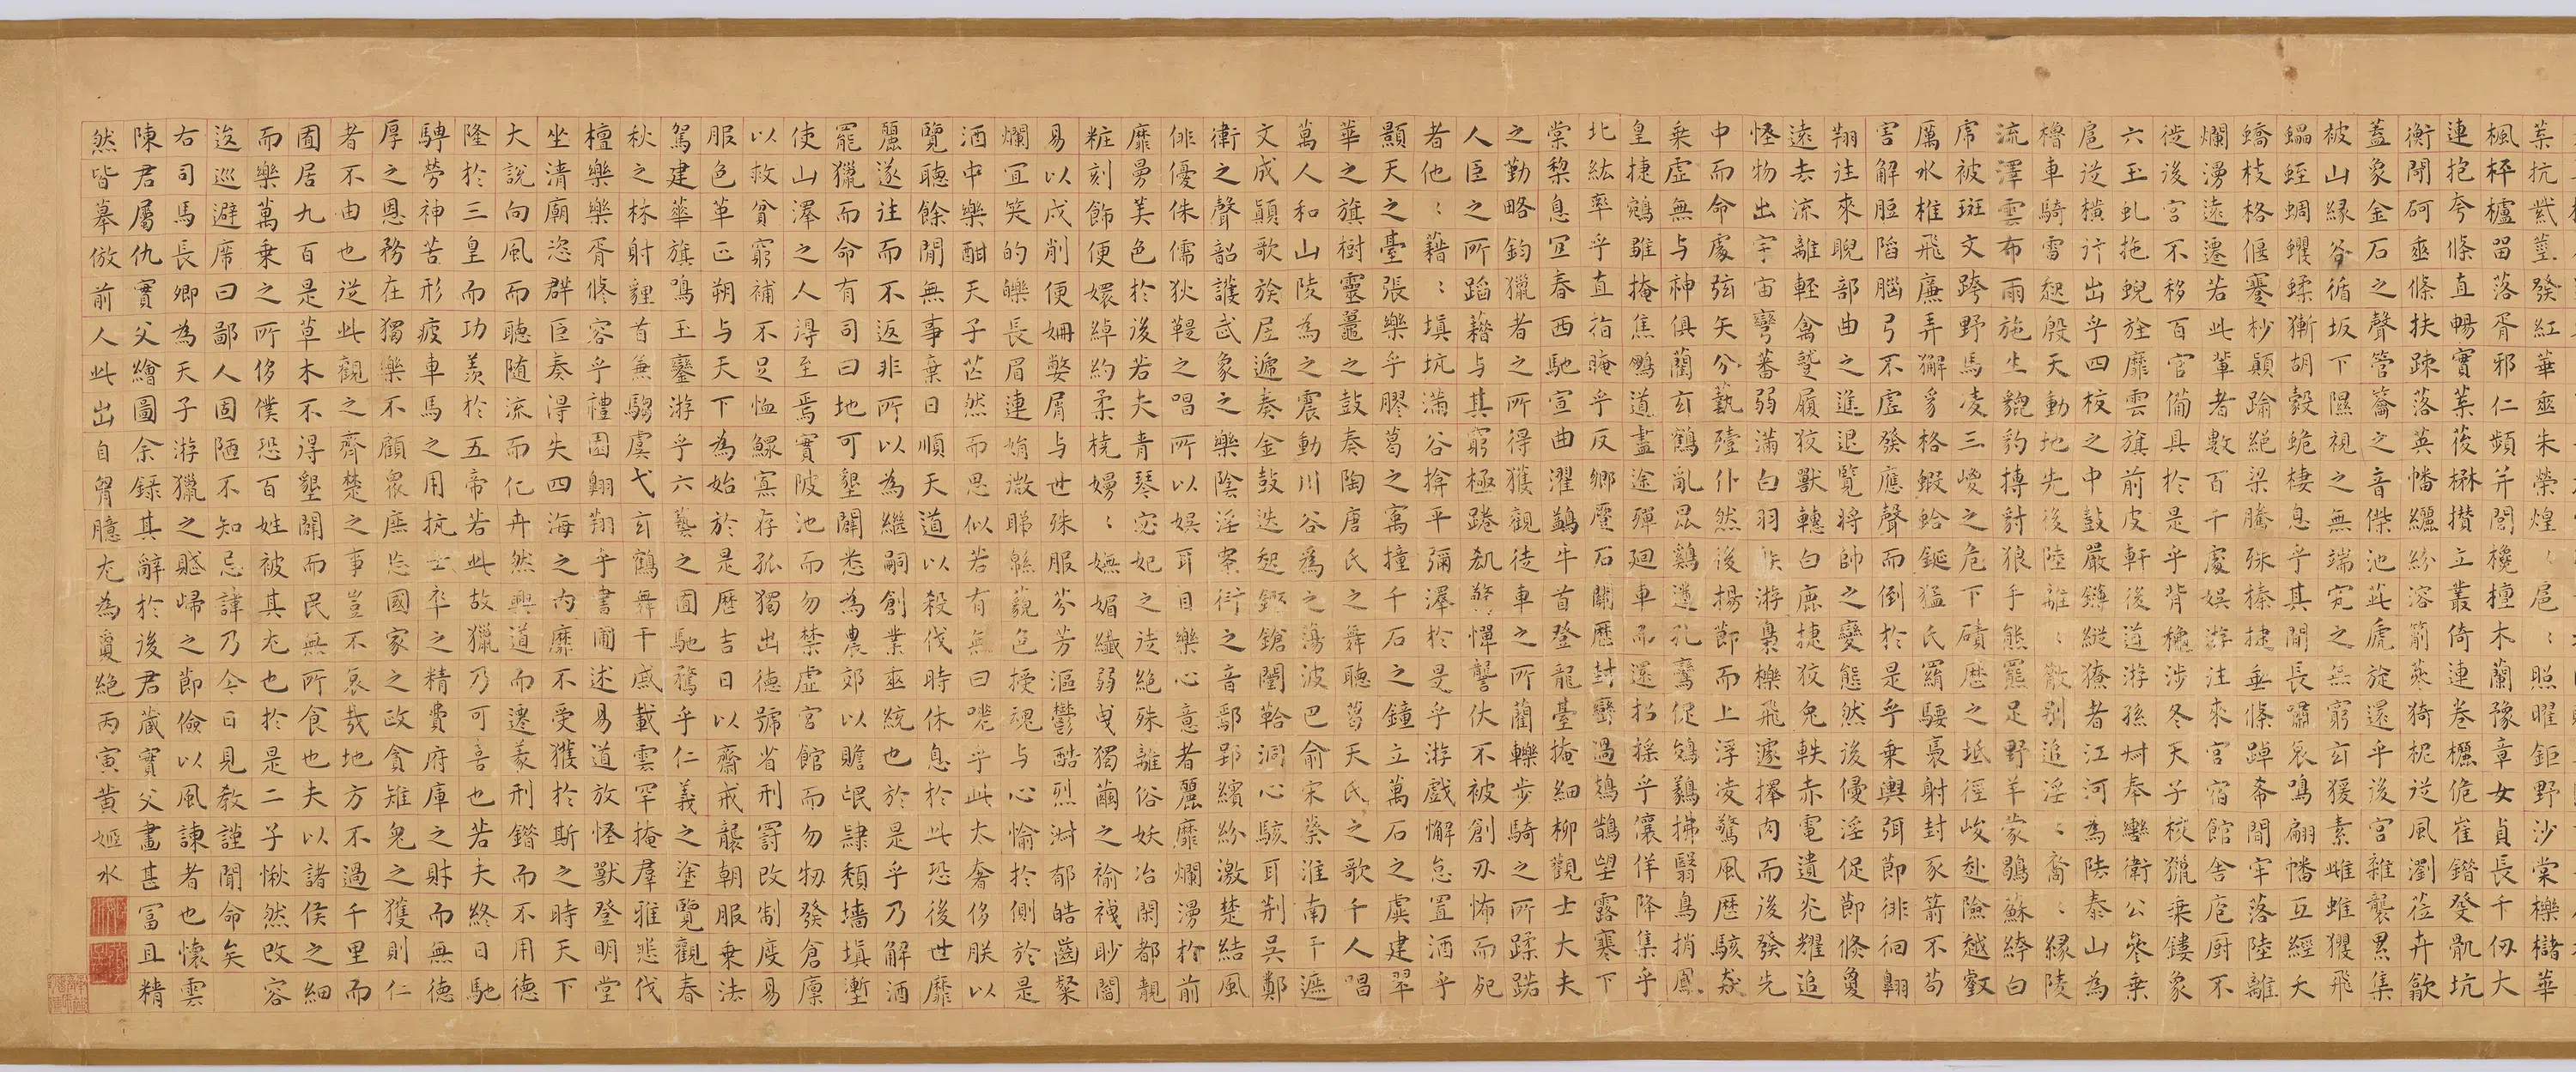 葉抗紫莖發紅華垂朱榮煌〻扈〻照曜鉅野沙棠櫟櫧華
楓枰櫨留落胥邪仁頻并閭欃檀木蘭豫章女貞長千仞大
連抱夸條直暢實葉葰楙攢立叢倚連卷欐佹崔錯癹骫坑
衡閜砢垂條扶疎落英幡纚紛溶萷蔘猗柅從風瀏蒞卉歙
蓋象金石之聲管籥之音傑池茈虒旋還乎後宮雜襲絫集
被山緣谷循坂下隰視之無端究之無窮玄猨素雌蜼玃飛
蠝蛭蜩蠷蝚獑胡縠蛫棲息乎其間長嘯哀鳴翩幡互經夭
蟜枝格偃蹇杪顛踰絕梁騰殊榛捷垂條踔希間牢落陸離
爛漫遠遷若此輩者數百千處娛游往來宮宿館舍庖厨不
徙後宮不移百官備具於是乎背秋涉冬天子校獵乘鏤象
六玉虬拖蜺旌靡雲旗前皮軒後道游孫叔奉轡衛公參乘
扈從橫行出乎四校之中鼓嚴鏄縱獠者江河為阹泰山為
櫓車騎雷起殷天動地先後陸離〻散別追淫〻裔〻緣陵
流澤雲布雨施生貔豹搏豺狼手熊羆足野羊蒙鶡蘇絝白
虎被斑文跨野馬凌三嵕之危下磧歷之坻徑峻赴險越壑
厲水椎飛廉弄獬豸格蝦蛤鋋猛氏羂騕褭射封豕箭不苟
害解脰陷腦弓不虛發應聲而倒於是乎乘輿弭節徘徊翱
翔往來睨部曲之進退覽將帥之變態然後侵淫促節倏敻
遠去流離輕禽蹵履狡獸轊白鹿捷狡兔軼赤電遺光耀追
怪物出宇宙彎蕃弱滿白羽射游梟櫟飛遽擇肉而後發先
中而命處弦矢分藝殪仆然後揚節而上浮凌驚風歷駭猋
乘虛無与神俱藺玄鶴亂昆鷄遒孔鸞促鵕鸃拂翳鳥捎鳳
皇捷鵷雛掩焦鵬道盡途殫廻車而還招搖乎儴佯降集乎
北紘率乎直指晻乎反鄉蹷石關歷封巒過鳷鵲望露寒下
棠梨息宜春西馳宣曲濯鷁牛首登龍臺掩細柳觀士大夫
之勤略鈞獵者之所得獲觀徒車之所藺轢步騎之所蹂踖
人臣之所蹈藉与其窮極踡㔸驚憚讋伏不被創刃怖而死
者他〻藉〻填坑滿谷揜平彌澤於是乎游戲懈怠置酒乎
顥天之臺張樂乎膠葛之寓撞千石之鐘立萬石之虡建翠
華之旗樹靈鼉之鼓奏陶唐氏之舞聽葛天氏之歌千人唱
萬人和山陵為之震動川谷為之蕩波巴俞宋蔡淮南干遮
文成顛歌族居遞奏金鼓迭起鏗鎗闛鞈洞心駭耳荆吳鄭
衛之聲韶濩武象之樂陰淫案衍之音鄢郢繽紛激楚結風
俳優侏儒狄鞮之唱所以娛耳目樂心意者麗靡爛漫於前
靡曼美色於後若夫青琴宓妃之徒絕殊離俗妖冶閑都靚
粧刻飾便嬛綽約柔橈嫚〻嫵媚纖弱曳獨繭之褕襪眇閻
易以戌削便姍嫳屑与世殊服芬芳漚鬱酷烈淑郁皓齒粲
爛宜笑的皪長眉連娟微睇緜藐色授魂与心愉於側於是
酒中樂酣天子芒然而思似若有無曰嗟乎此太奢侈朕以
覽聽餘閒無事棄日順天道以殺伐時休息於此恐後世靡
麗遂往而不返非所以為繼嗣創業垂統也於是乎乃解酒
罷獵而命有司曰地可墾闢悉為農郊以贍氓隸頹墻填塹
使山澤之人得至焉實陂池而勿禁虛宮館而勿物發倉廩
以救貧窮補不足恤鰥寡存孤獨出德號省刑罰改制度易
服色革正朔与天下為始於是歷吉日以齋戒襲朝服乘法
駕建華旗鳴玉鑾游乎六藝之囿馳騖乎仁義之塗覽觀春
秋之林射貍首兼騶虞弋玄鶴舞干戚載雲罕掩羣雅悲伐
檀樂樂胥修容乎禮園翱翔乎書圃述易道放怪獸登明堂
坐清廟恣群臣奏得失四海之內靡不受獲於斯之時天下
大說向風而聽隨流而化卉然興道而遷義刑錯而不用德
隆於三皇而功羨於五帝若此故獵乃可喜也若夫終日馳
騁勞神苦形疲車馬之用抗士卒之精費府庫之財而無德
厚之恩務在獨樂不顧眾庶忘國家之政貪雉兔之獲則仁
者不由也從此觀之齊楚之事豈不哀哉地方不過千里而
囿居九百是草木不得墾闢而民無所食也夫以諸侯之細
而樂萬乘之所侈僕恐百姓被其尤也於是二子愀然改容
逡巡避席曰鄙人固陋不知忌諱乃今日見教謹聞命矣
右司馬長卿為天子游獵之賦歸之節儉以風諫者也懷雲
陳君屬仇實父繪圖余錄其辭於後君藏實父畫甚富且精
然皆摹倣前人此出自胷臆尤為敻絕丙寅黃姬水